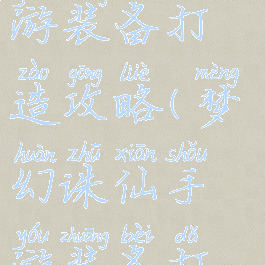 游装备打
zào gōng lüè mèng
造攻略(梦
huàn zhū xiān shǒu
幻诛仙手
yóu zhuāng bèi dǎ
游装备打